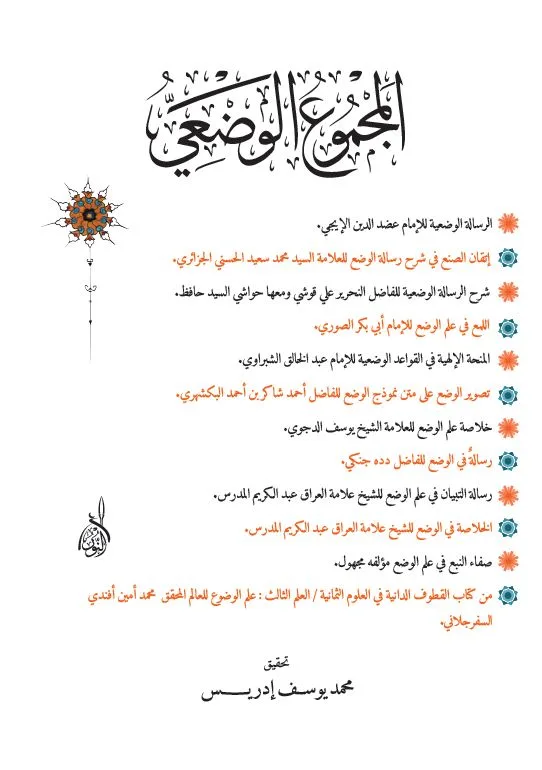 المجْمُوعُ الوَضْعِيُّ
الرسالة الوضعية للإمام عضد الدين الإيجي.
إتقان الصنع في شرح رسالة الوضع للعلامة السيد محمد سعيد الحسني الجزائري.
شرح الرسالة الوضعية للفاضل النحرير علي قوشي ومعها حواشي السيد حافظ.
اللمع في علم الوضع للإمام أبي بكر الصوري.
المنحة الإلهية في القواعد الوضعية للإمام عبد الخالق الشبراوي.
تصوير الوضع على متن نموذج الوضع للفاضل أحمد شاكر بن أحمد البكشهري.
خلاصة علم الوضع للعلامة الشيخ يوسف الدجوي.
رسالةٌ في الوضع للفاضل دده جنكي.
رسالة التبيان في علم الوضع للشيخ علامة العراق عبد الكريم المدرس.
الخلاصة في الوضع للشيخ علامة العراق عبد الكريم المدرس.
صفاء النبع في علم الوضع مؤلفه مجهول.
من كتاب القطوف الدانية في العلوم الثمانية / العلم الثالث : علم الوضوع للعالم المحقق محمد أمين أفندي
السفرجلاني.
النور
تحقيق
محمد يوسف إدريس